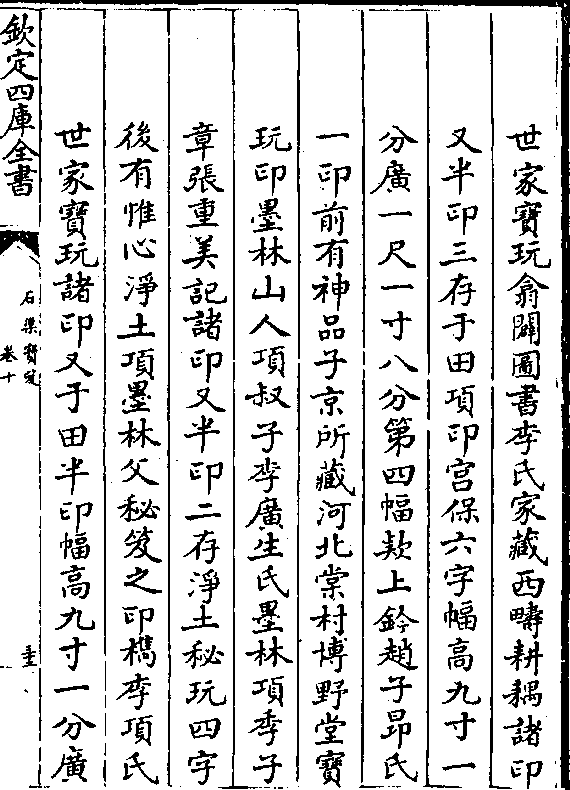 世家寳玩翕闢圖書李氏家藏西疇耕耦諸印
又半印三存于田項印宫保六字幅高九寸一
分廣一尺一寸八分第四幅欵上鈐趙子昻氏
一印前有神品子京所藏河北棠村博野堂寳
玩印墨林山人項叔子李廣生氏墨林項季子
章張重美記諸印又半印二存淨土秘玩四字
後有惟心淨土項墨林父秘笈之印檇李項氏
世家寳玩諸印又于田半印幅高九寸一分廣
欽定四庫全書
石渠寳笈
卷十